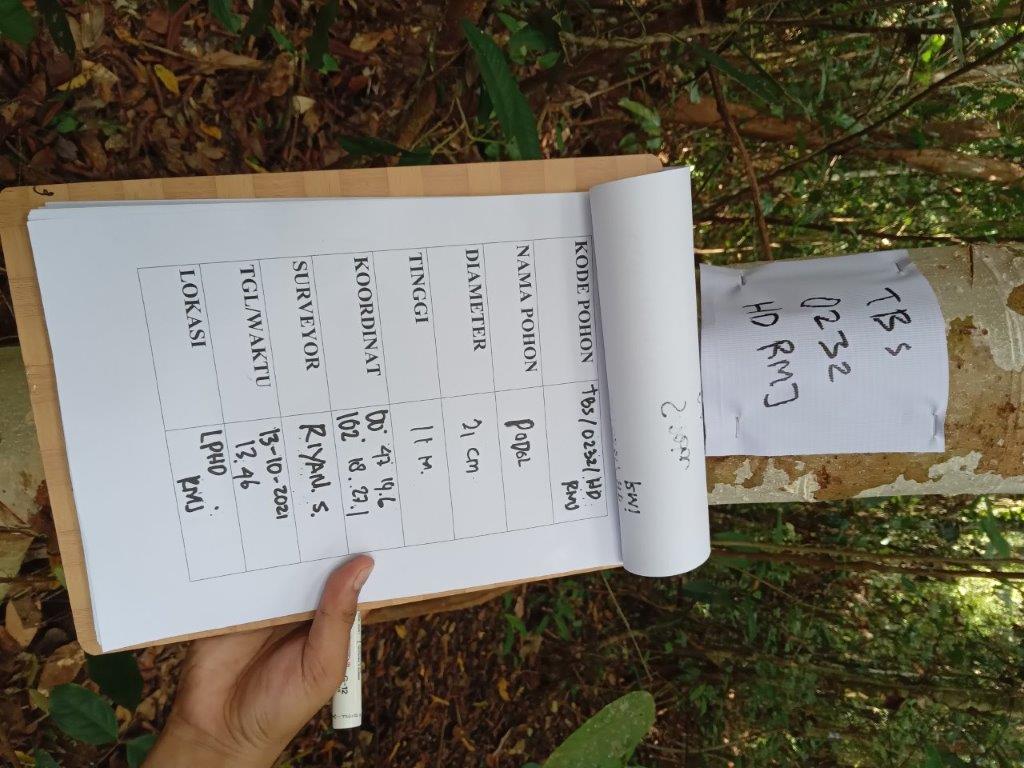 TBS
0232
HD RMJ
KODE POHON TBS/0232/HD
RMJ
NAMA POHON PODOL
DIAMETER 21 cm
TINGGI 11 M.
KOORDINAT 00° 47 19.6
102° 18. 27.1
SURVEYOR RIYAN. S.
TGL/WAKTU 13-10-2021
13.46
LOKASI LPHD
RMJ
G-12